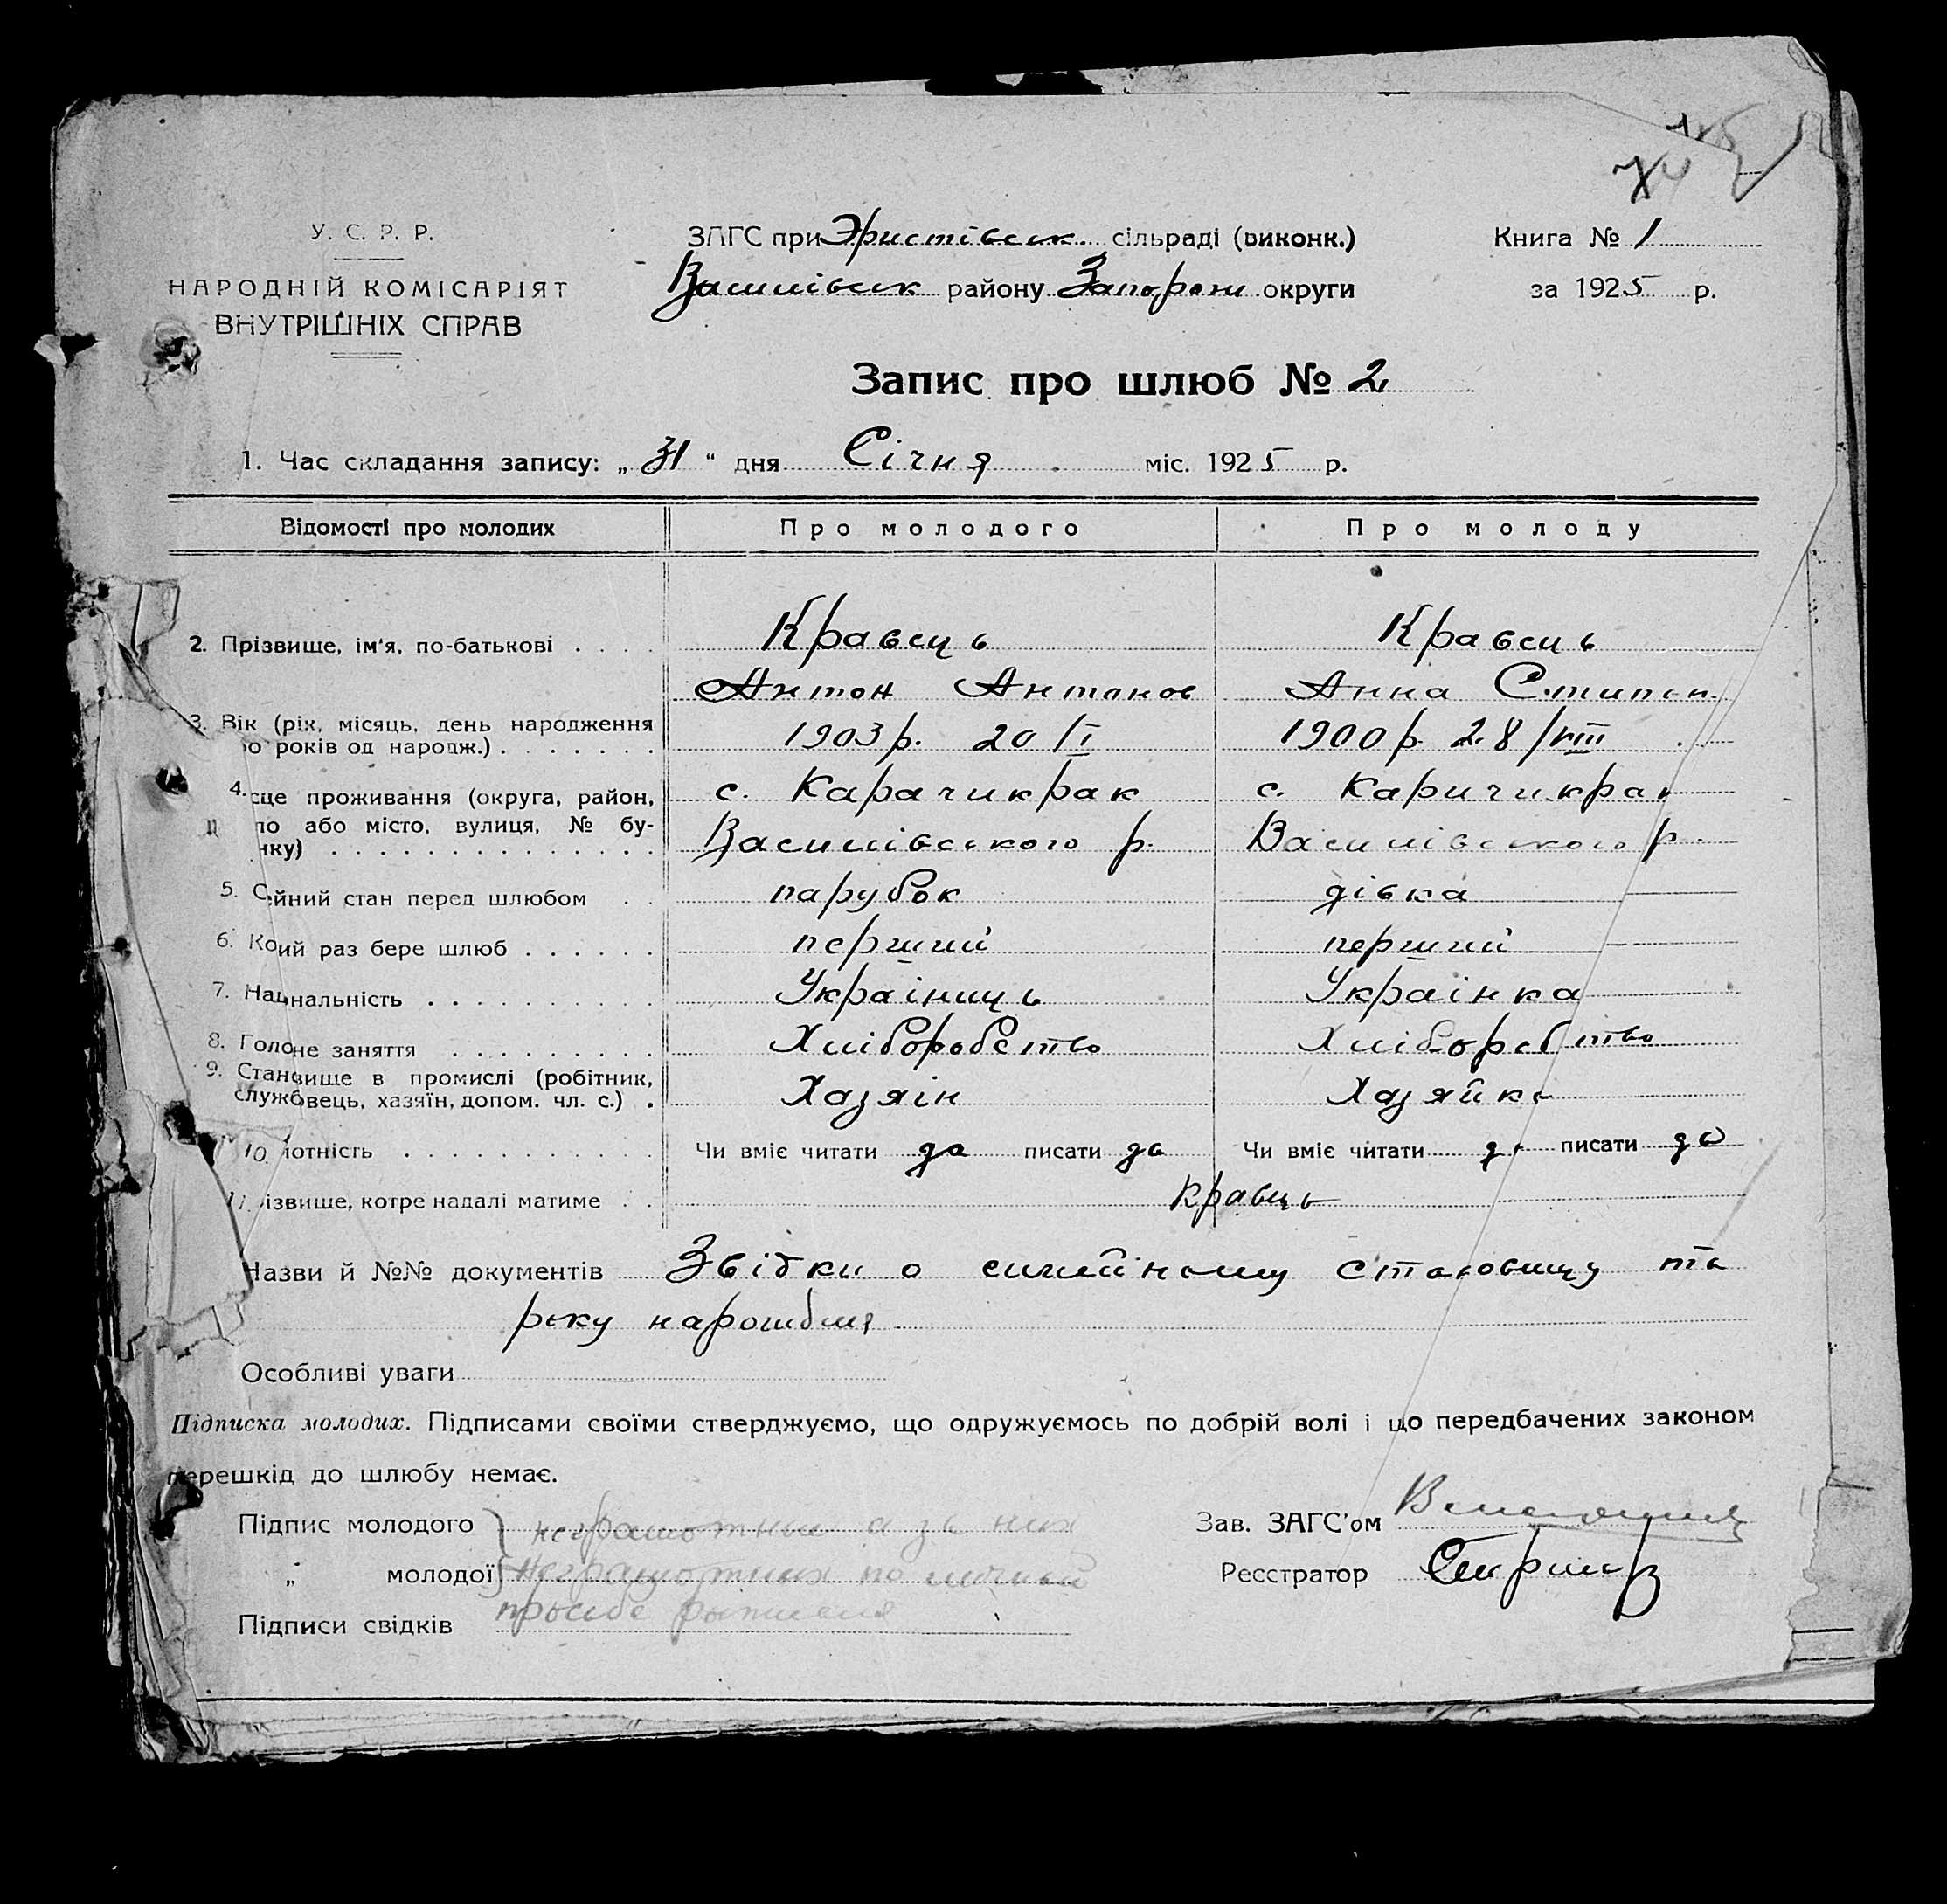 74
У. С. Р. Р.
НАРОДНІЙ КОМІСАРІЯТ
ВНУТРІШНІХ СПРАВ
ЗАГС при Эристівськ. сільраді (виконк.)
Василівськ району Запорож округи
Книга № 1
за 1925 р.
Запис про шлюб № 2
1. Час складання запису: „ 31 “ дня Січня міс. 1925 р.
Відомості про молодих Про молодого Про молоду
2. Прізвище, ім'я, по-батькові . . . . Кравець Кравець
Антон Антонов Анна Степан.
3. Вік (рік, місяць, день народження 1903 р. 20/I 1900 р. 28/VIII
або років од народж.) . . . . . . .
4. сце проживання (округа, район, с. Карачикрак с. Карачикрак
ло або місто, вулиця, № бу- Василівського р. Василівського р.
нку) . . . . . . . . . . . . . .
5. С йний стан перед шлюбом . . парубок дівка
6. Ко ий раз бере шлюб . . . . . . перший перший
7. Наці нальність . . . . . . . . . . Україниць Українка
8. Голо не заняття . . . . . . . . . Хліборобство Хліборобство
9. Стано вище в промислі (робітник, Хазяін Хазяйка
службовець, хазяїн, допом. чл. с.) .
10. мотність . . . . . . . . . . . Чи вміє читати да писати да Чи вміє читати да писати да
11. ізвище, котре надалі матиме . . Кравць
Назви й №№ документів Звідки о симейному становищу та
року народження
Особливі уваги
Підписка молодих. Підписами своїми стверджуємо, що одружуємось по добрій волі і що передбачених законом
перешкід до шлюбу немає.
Підпис молодого неграмотные а за них
„ молодої неграмотних по личной
Підписи свідків просьбе
Зав. ЗАГС'ом
Реєстратор